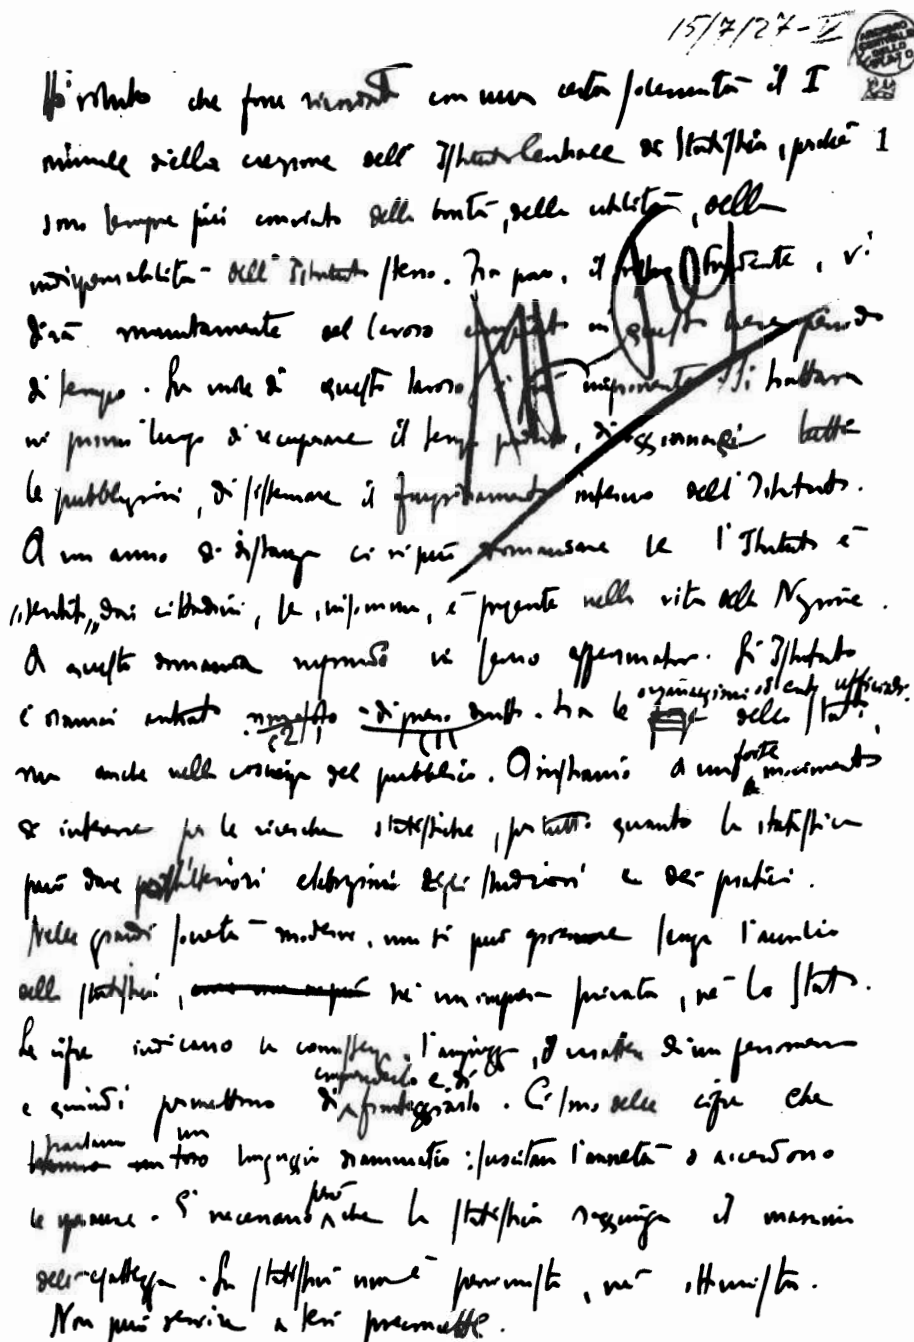 15/7/27 - V
ARCHIVIO CENTRALE DELLO STATO
Ho voluto che fosse ricordato con una certa solennità il I
1
annuale della creazione dell'Istituto Centrale di Statistica, poiché
sono sempre più convinto della bontà, della utilità, della
indispensabilità dell'Istituto stesso. Fra poco, il Presidente, vi
dirà minutamente del lavoro compiuto in questo breve periodo
di tempo. La mole di questo lavoro è imponente. Si trattava
in primo luogo di recuperare il tempo perduto, di aggiornare tutte
le pubblicazioni, di sistemare il funzionamento interno dell'Istituto.
A un anno di distanza ci si può domandare se l'Istituto è
„sentito„ dai cittadini, se, insomma, è presente nella vita della Nazione.
A questa domanda rispondo in senso affermativo. L'Istituto
è oramai entrato di pieno diritto tra le organizzazioni ed enti ufficiali dello Stato,
ma anche nella coscienza del pubblico. Assistiamo a un forte movimento
di interesse per le ricerche statistiche, per tutto quanto la statistica
può dare per ulteriori elaborazioni degli studiosi e dei pratici.
Nelle grandi società moderne, non si può governare senza l'ausilio
della statistica, né un'impresa privata, né lo Stato.
Le cifre indicano la consistenza, l'ampiezza, il carattere di un fenomeno
e quindi permettono di comprenderlo e di fronteggiarlo. Ci sono delle cifre che
parlano un loro linguaggio drammatico: suscitano l'ansietà o accendono
le speranze. È necessario però che la statistica raggiunga il massimo
dell'esattezza. La statistica non è pessimista, né ottimista.
Non può servire a tesi preconcette.